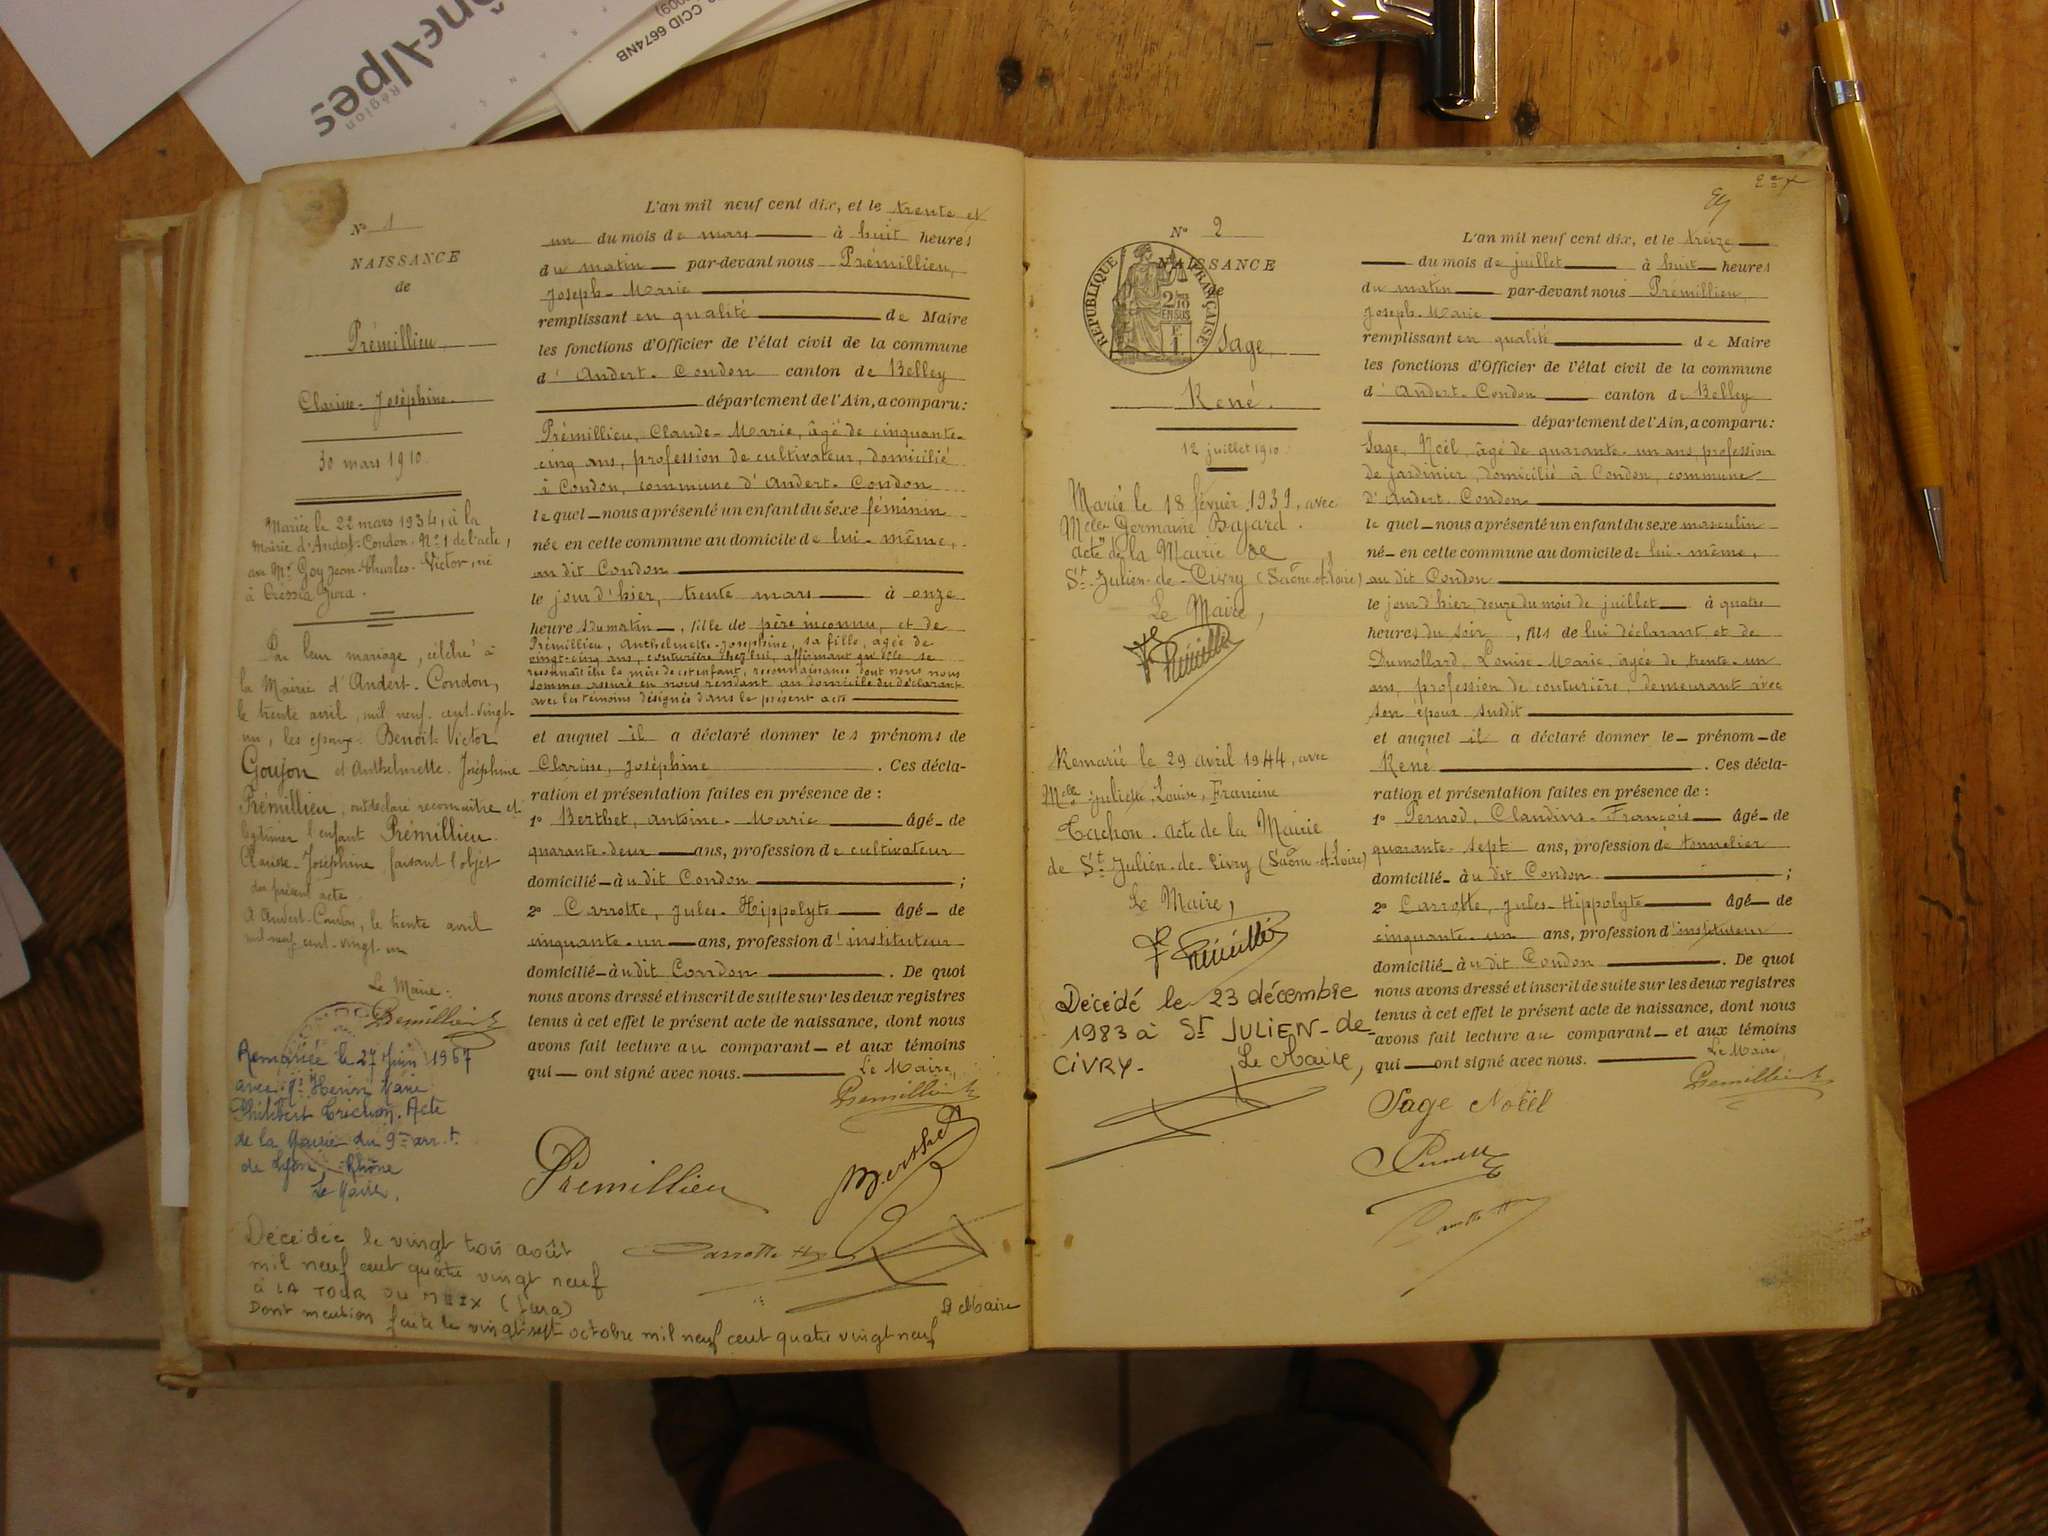 ône-Alpes
Région
CCID 6674NB
N° 1
NAISSANCE
de
Prémillieu,
Clarisse-Joséphine.
30 mars 1910.
Mariée le 22 mars 1934, à la
Mairie d'Andert-Condon, N° 1 de l'acte,
au Mr Goy Jean-Charles-Victor, né
à Cressia Jura.
Par leur mariage, célébré à
la Mairie d'Andert-Condon,
le trente avril, mil neuf-cent-vingt-
un, les époux Benoît-Victor
Goujon et Anthelmette-Joséphine
Prémillieu, ont déclaré reconnaître et
légitimer l'enfant Prémillieu
Clarisse-Joséphine, faisant l'objet
du présent acte.
A Andert-Condon, le trente avril
mil-neuf-cent-vingt-un
Le Maire:
Premillieu
Remariée le 27 Juin 1967
avec
Philibert Trichon. Acte
de la Mairie du 9me arrt
de Lyon, Rhône
Le Maire.
Décédée le vingt trois août
mil neuf cent quatre vingt neuf
à LA TOUR DU MEIX (Jura)
Dont mention faite le vingt sept octobre mil neuf cent quatre vingt neuf
Le Maire
L'an mil neuf cent dix, et le trente et
un du mois de mars à huit heures
du matin par-devant nous Prémillieu,
Joseph-Marie
remplissant en qualité de Maire
les fonctions d'Officier de l'état civil de la commune
d'Andert-Condon canton de Belley
département de l'Ain, a comparu:
Prémillieu, Claude-Marie, âgé de cinquante-
cinq ans, profession de cultivateur, domicilié
à Condon, commune d'Andert-Condon
lequel nous a présenté un enfant du sexe féminin
née en cette commune au domicile de lui-même,
au dit Condon
le jour d'hier, trente mars à onze
heures du matin, fille de père inconnu, et de
Prémillieu, Anthelmette-Joséphine, sa fille, agée de
vingt-cinq ans, couturière chez lui, affirmant qu'elle se
reconnaît être la mère de cet enfant, reconnaissance dont nous nous
sommes assuré en nous rendant au domicile du déclarant
avec les témoins désignés dans le présent acte
et auquel il a déclaré donner les prénoms de
Clarisse, Joséphine. Ces décla-
ration et présentation faites en présence de:
1° Berthet, Antoine-Marie âgé de
quarante-deux ans, profession de cultivateur
domicilié au dit Condon;
2° Carrotte, Jules-Hippolyte âgé de
cinquante-un ans, profession d'instituteur
domicilié au dit Condon. De quoi
nous avons dressé et inscrit de suite sur les deux registres
tenus à cet effet le présent acte de naissance, dont nous
avons fait lecture au comparant et aux témoins
qui ont signé avec nous. Le Maire,
Premillieu
Prémillieu
Berthet
Carrotte
2e f
N° 2
NAISSANCE
de
RÉPUBLIQUE FRANÇAISE
2/10
EN SUS
Sage,
René.
12 juillet 1910.
Marié le 18 février 1939, avec
Melle Germaine Bajard.
acte de la Mairie de
St-Julien-de-Civry (Saône-et-Loire)
Le Maire,
Prémillieu
Remarié le 29 avril 1944, avec
Melle Juliette, Louise, Francine
Tachon. acte de la Mairie
de St-Julien-de-Civry (Saône-et-Loire)
Le Maire,
Prémillieu
Décédé le 23 décembre
1983 à St JULIEN-de-
CIVRY.
Le Maire,
L'an mil neuf cent dix, et le treize
du mois de juillet à huit heures
du matin par-devant nous Prémillieu,
Joseph-Marie
remplissant en qualité de Maire
les fonctions d'Officier de l'état civil de la commune
d'Andert-Condon canton de Belley
département de l'Ain, a comparu:
Sage, Noël, âgé de quarante-un ans, profession
de jardinier, domicilié à Condon, commune
d'Andert-Condon
lequel nous a présenté un enfant du sexe masculin
né en cette commune au domicile de lui-même,
au dit Condon
le jour d'hier douze du mois de juillet à quatre
heures du soir, fils de lui déclarant et de
Dumollard, Louise-Marie, agée de trente-un
ans, profession de couturière, demeurant avec
son époux susdit
et auquel il a déclaré donner le prénom de
René. Ces décla-
ration et présentation faites en présence de:
1° Pernod, Claudius-François âgé de
quarante-sept ans, profession de tonnelier
domicilié au dit Condon;
2° Carrotte, Jules-Hippolyte âgé de
cinquante-un ans, profession d'instituteur
domicilié au dit Condon. De quoi
nous avons dressé et inscrit de suite sur les deux registres
tenus à cet effet le présent acte de naissance, dont nous
avons fait lecture au comparant et aux témoins
qui ont signé avec nous. Le Maire,
Premillieu
Sage Noël